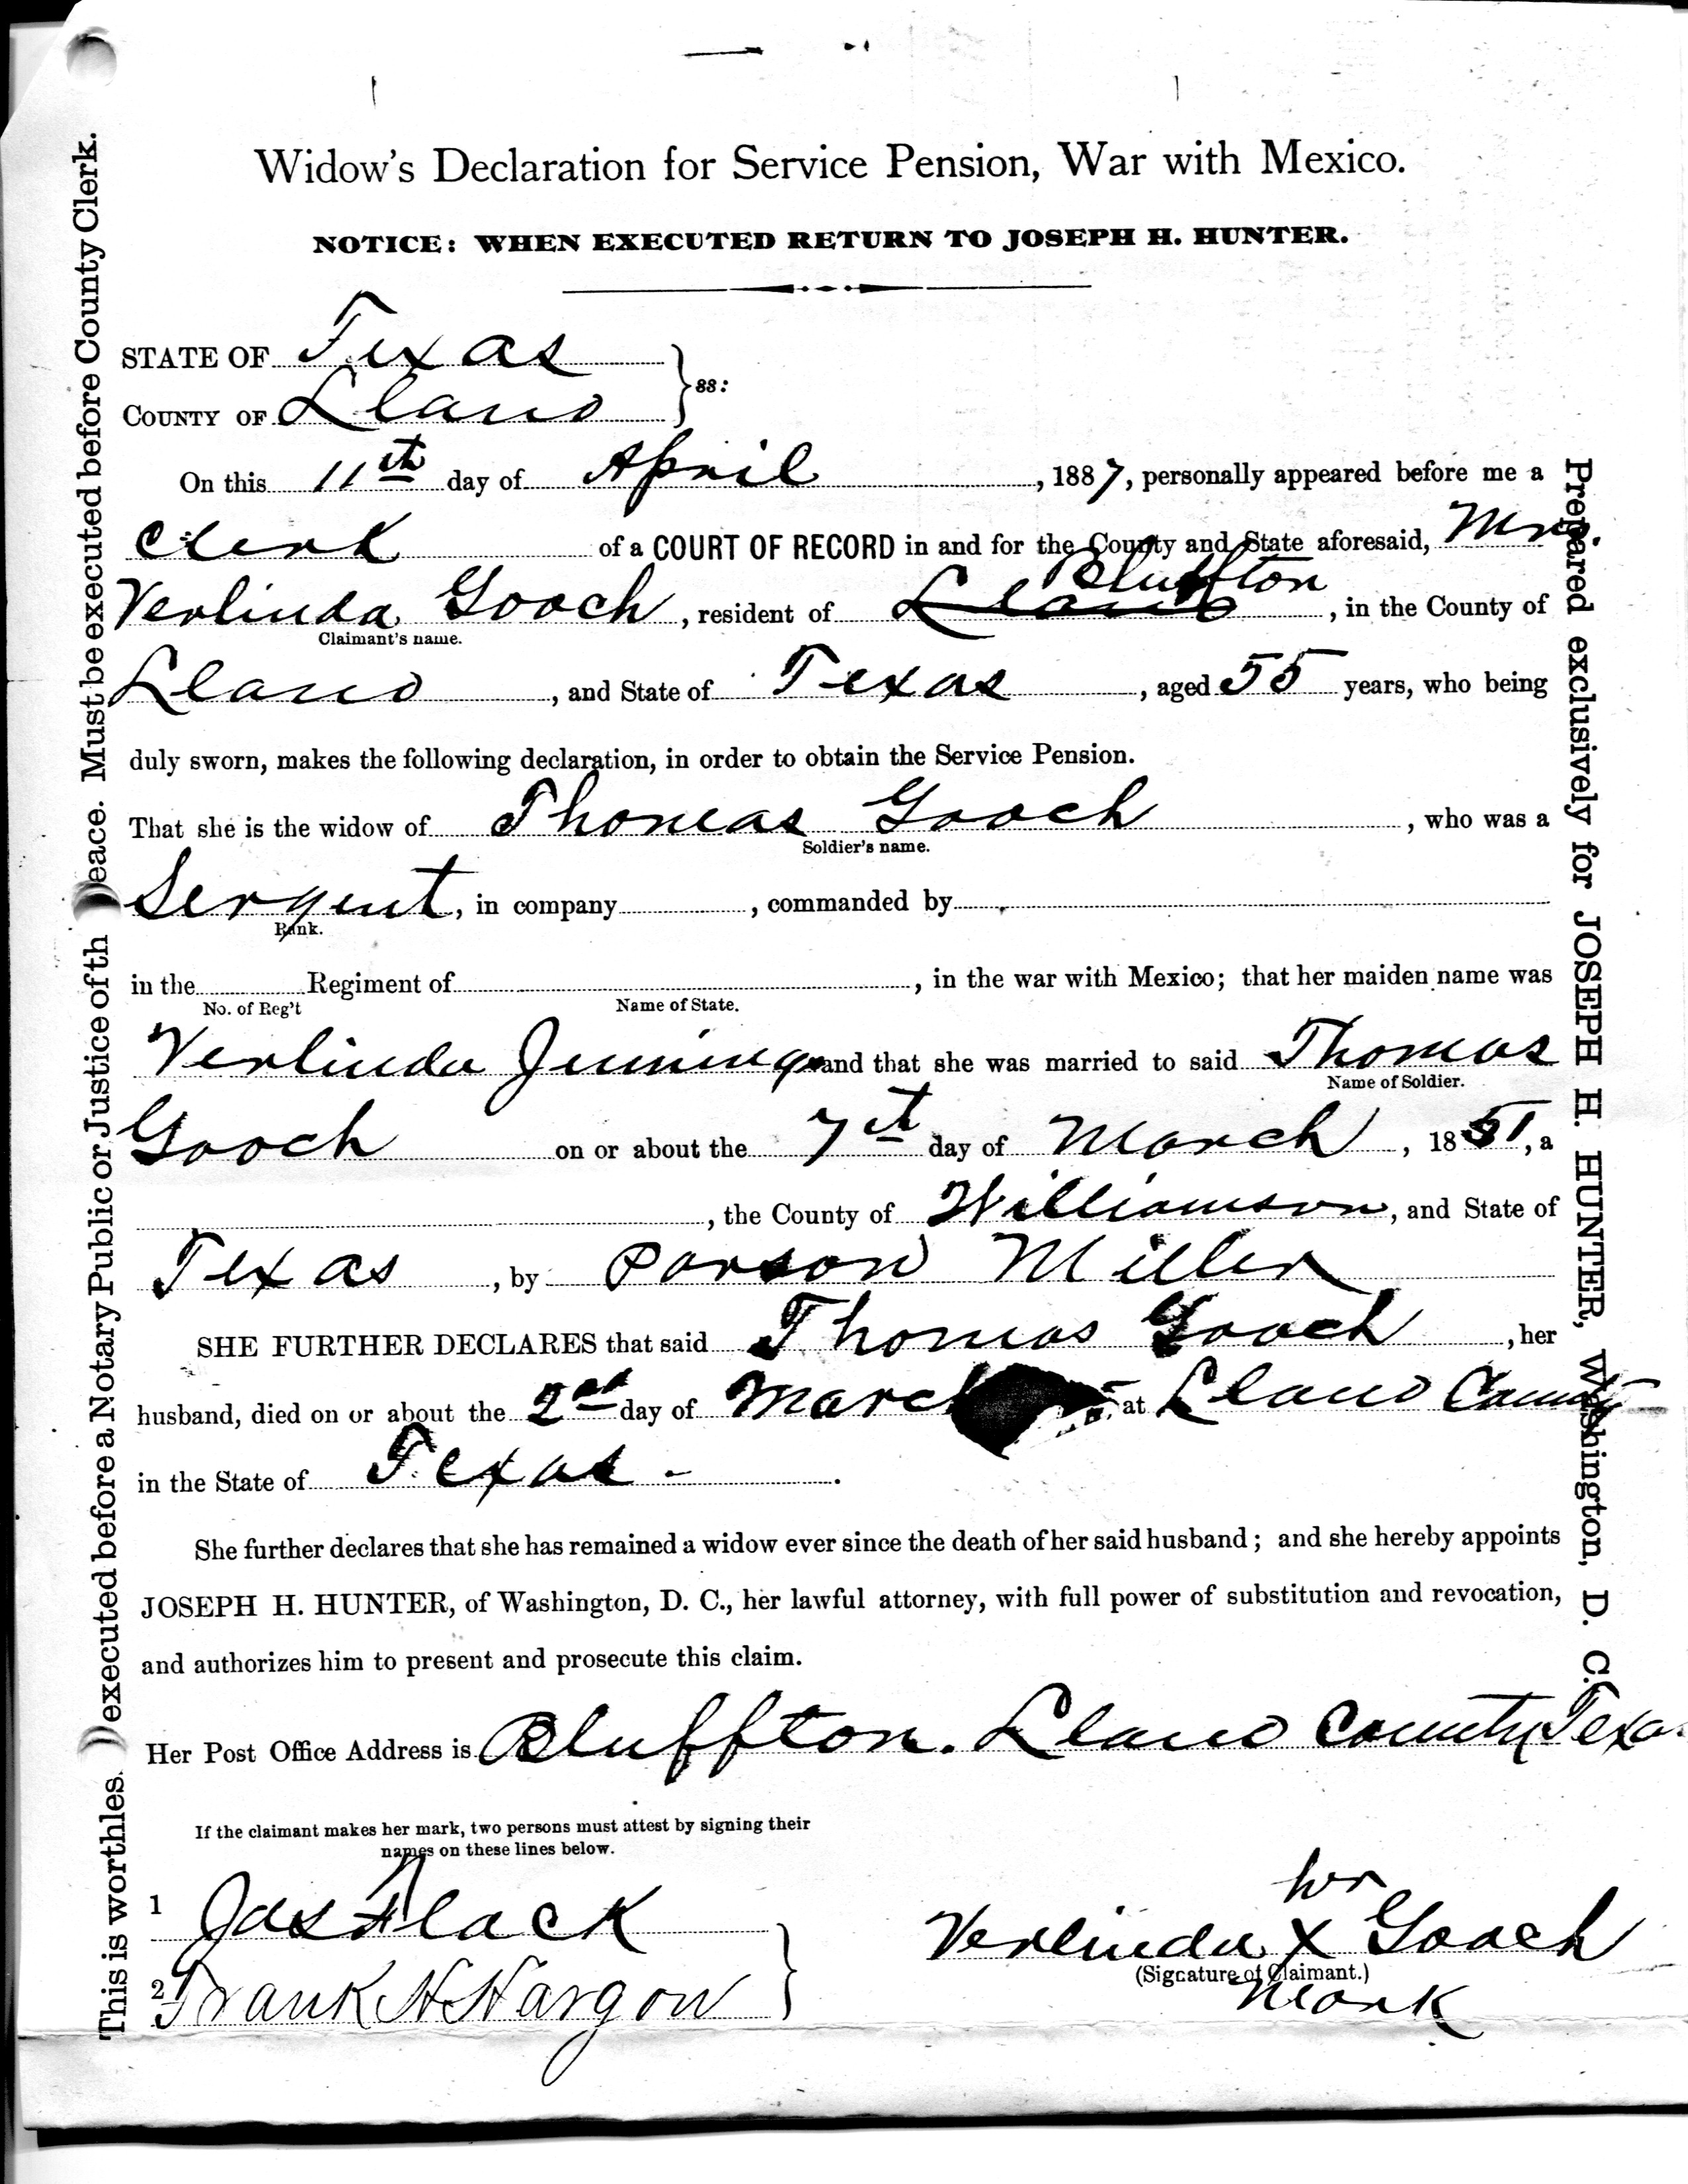 Widow's Declaration for Service Pension, War with Mexico.
NOTICE: WHEN EXECUTED RETURN TO JOSEPH H. HUNTER.
STATE OF Texas
COUNTY OF Llano } ss:
On this 11th day of April, 1887, personally appeared before me a
Clerk of a COURT OF RECORD in and for the County and State aforesaid, Mrs
Bluffton
Verlinda Gooch, resident of Llano, in the County of
Claimant's name.
Llano, and State of Texas, aged 55 years, who being
duly sworn, makes the following declaration, in order to obtain the Service Pension.
That she is the widow of Thomas Gooch, who was a
Soldier's name.
Sergent, in company, commanded by
Rank.
in the Regiment of, in the war with Mexico; that her maiden name was
No. of Reg't Name of State.
Verlinda Jennings and that she was married to said Thomas
Name of Soldier.
Gooch on or about the 7th day of March, 1851, a
, the County of Williamson, and State of
Texas, by Parson Miller
SHE FURTHER DECLARES that said Thomas Gooch, her
husband, died on or about the 2nd day of March at Llano County
in the State of Texas.
She further declares that she has remained a widow ever since the death of her said husband; and she hereby appoints
JOSEPH H. HUNTER, of Washington, D. C., her lawful attorney, with full power of substitution and revocation,
and authorizes him to present and prosecute this claim.
Her Post Office Address is Bluffton. Llano County Texas
If the claimant makes her mark, two persons must attest by signing their
names on these lines below.
1 Jas Flack
2 Frank H Hargon
her
Verlinda X Gooch
(Signature of Claimant.)
mark
This is worthles. executed before a Notary Public or Justice of th eace. Must be executed before County Clerk.
Prepared exclusively for JOSEPH H. HUNTER, Washington, D. C.